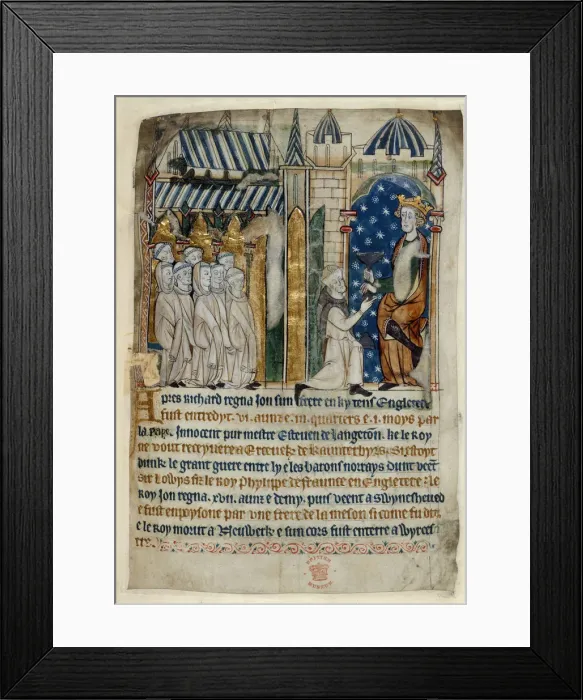 Apres Richard regna Jon sun frere en ky tens Engletere
fust entredyt . vi . aunz e . iii . quarters e . i . moys par
la Pape . Innocent pur mestre Esteven de Langetoun . ke le Roy
ne vout receyvere a Erceveke de Kaunterbyre . Si
dunk le grant guere entre ly e les barons norrays dunt veent
sir Lowys fiz le Roy Phylipe de Fraunse en Engletere . le
Roy Jon regna . xvii . aunz e demy . puis veent a Swynesheued
e fust enpoysone par une frere de la meson si come fu dit
e le Roy morut a Neuwerk e sun cors fust enterre a Wyrecestre
BRITISH
MUSEUM